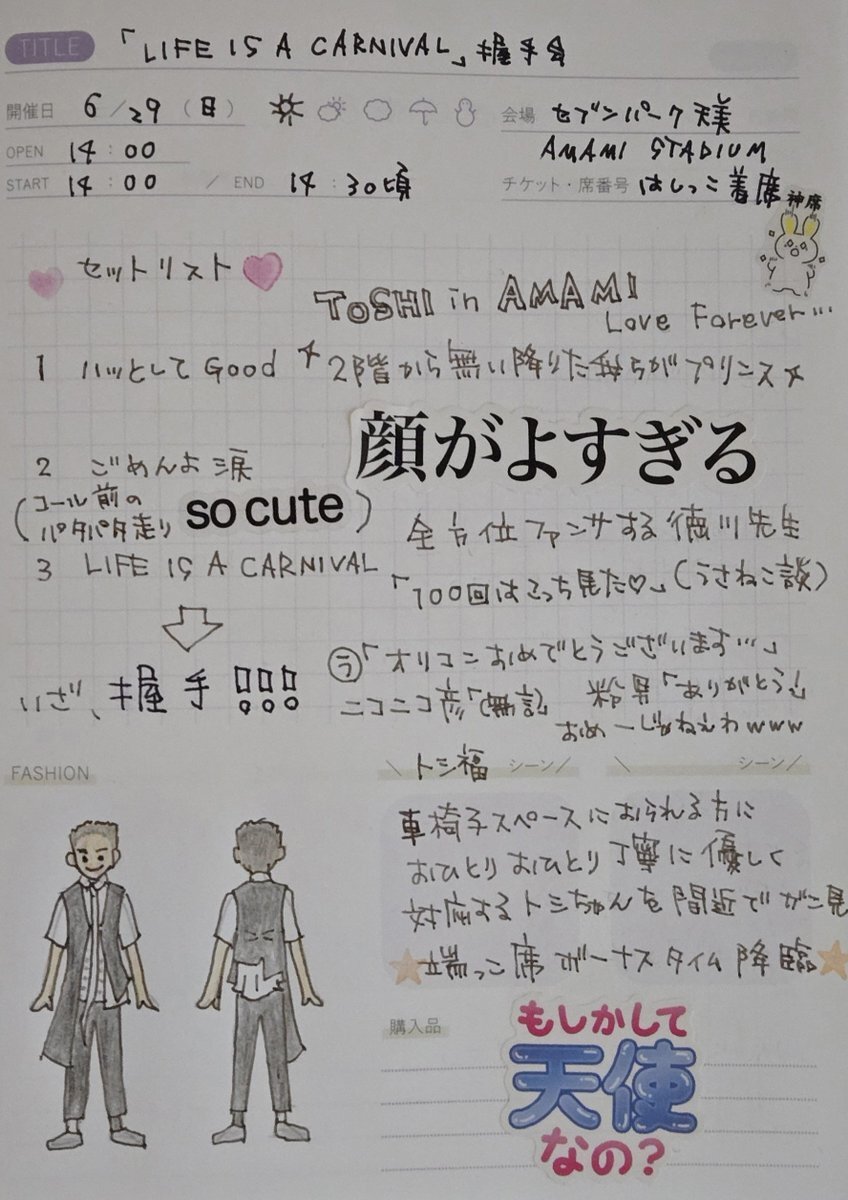 TITLE 「LIFE IS A CARNIVAL」握手会
開催日 6/29(日)
会場 セブンパーク天美
AMAMI STADIUM
OPEN 14:00
START 14:00 / END 14:30頃
チケット・席番号 はしっこ着席
神席
セットリスト
TOSHI in AMAMI
Love Forever…
1 ハッとしてGood
☆2階から舞い降りた我らがプリンス☆
顔がよすぎる
2 ごめんよ涙
(コール前の
パタパタ走り so cute)
全方位ファンサする徳川先生
3 LIFE IS A CARNIVAL
「100回はこっち見た♡」(うさねこ談)
いざ、握手!!!
ラ「オリコンおめでとうございます…」
ニコニコ彦「(無言)」
粉男「ありがとう!」
おめーじゃねえわwww
FASHION
\トシ福 シーン/
\ シーン/
車椅子スペースにおられる方に
おひとりおひとり丁寧に優しく
対応するトシちゃんを間近でガン見
★端っこ席ボーナスタイム降臨★
購入品
もしかして
天使
なの?